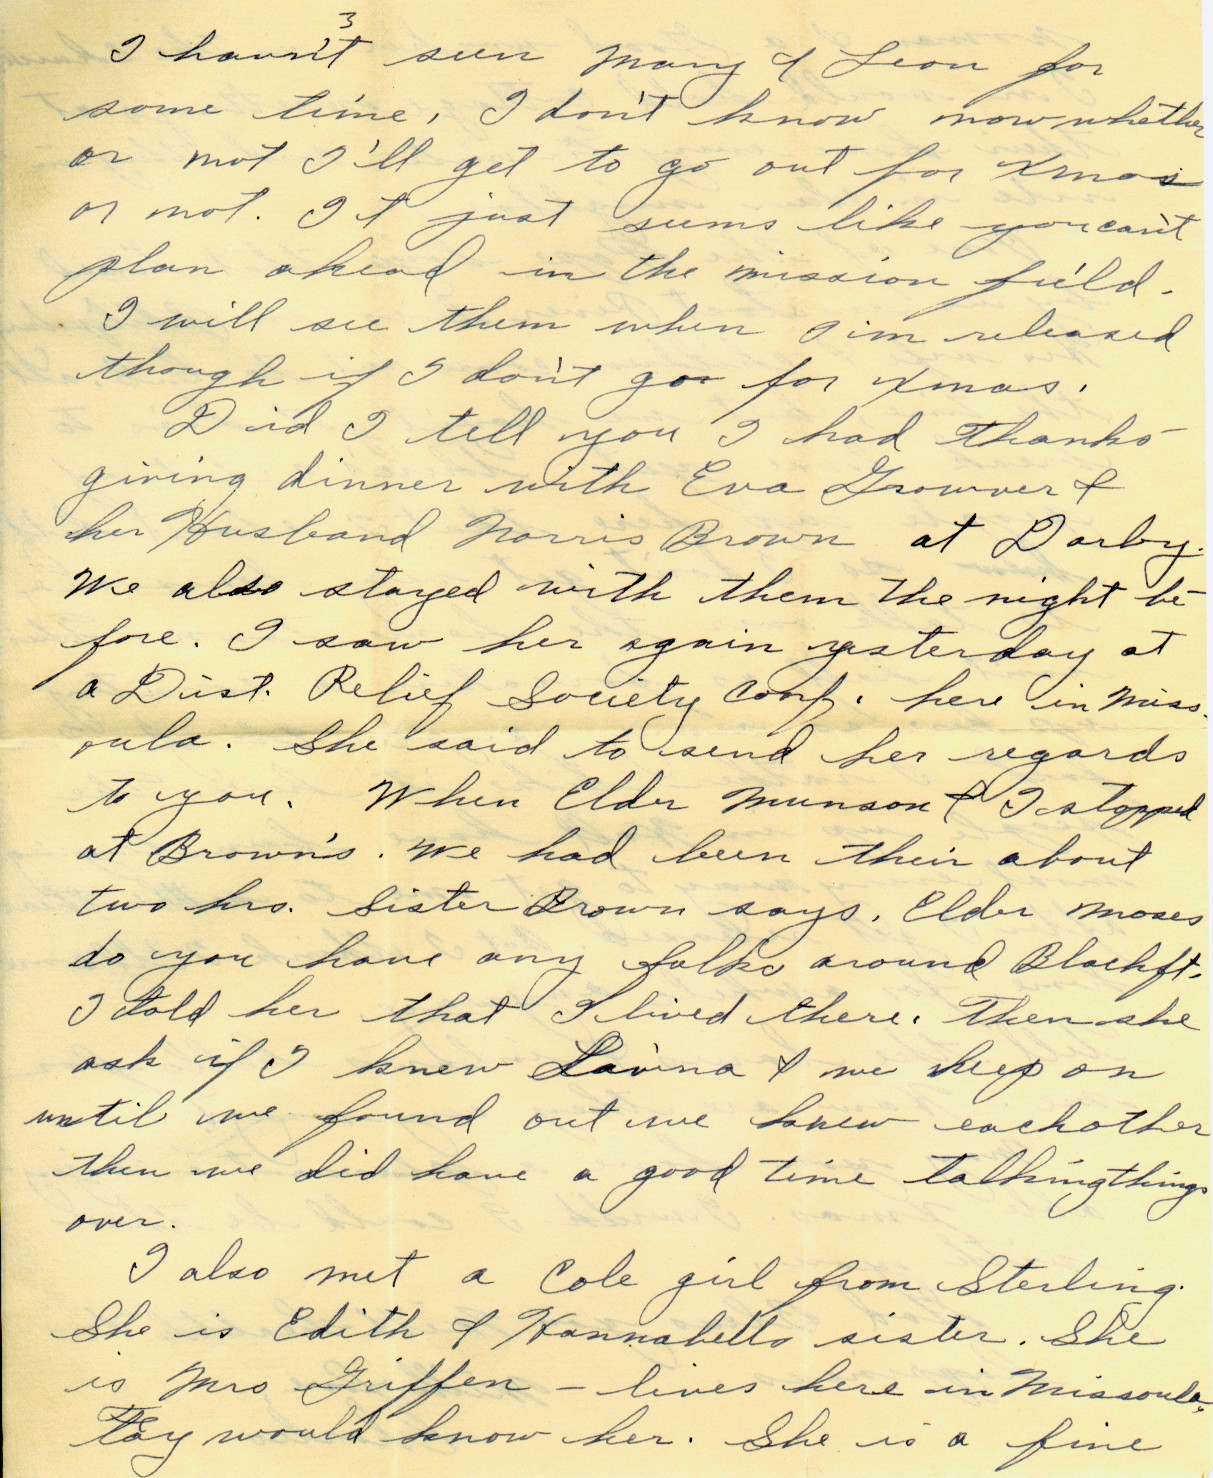 3
I havn't seen Mary & Leon for
some time, I don't know now whether
or not I'll get to go out for Xmas
or not. It just seems like you can't
plan ahead in the mission field.
I will see them when I'm released
though if I don't go for Xmas.
Did I tell you I had Thanks-
giving dinner with Eva Growver &
her Husband Norris Brown at Darby.
We also stayed with them the night be-
fore. I saw her again yesterday at
a Dist. Relief Society Conf. here in Miss-
oula. She said to send her regards
to you. When Elder Munson & I stopped
at Brown's. We had been their about
two hrs. Sister Brown says, Elder Moses
do you have any folks around Blackft.
I told her that I lived there. Then she
ask if I knew Lavina & we keep on
until we found out we knew eachother
then we did have a good time talking things
over.
I also met a Cole girl from Sterling.
She is Edith & Hannabells sister. She
is Mrs Griffen – lives here in Missoula.
Fay would know her. She is a fine